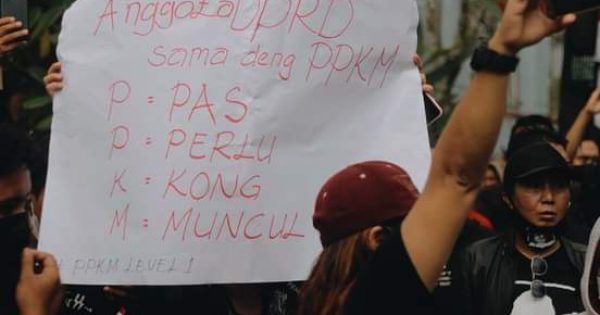 Anggota DPRD
sama deng PPKM
P = PAS
P = PERLU
K = KONG
M = MUNCUL
# PPKM LEVEL 1